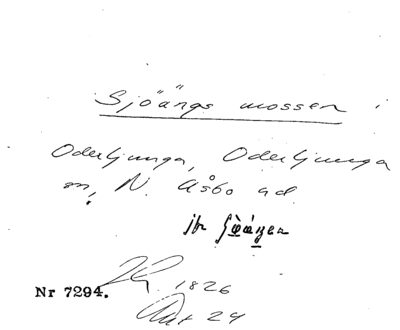 Sjöängs mossen
Oderljunga, Oderljunga
sn, N. Åsbo hd
jfr
1826
Nr 7294.
Akt 24